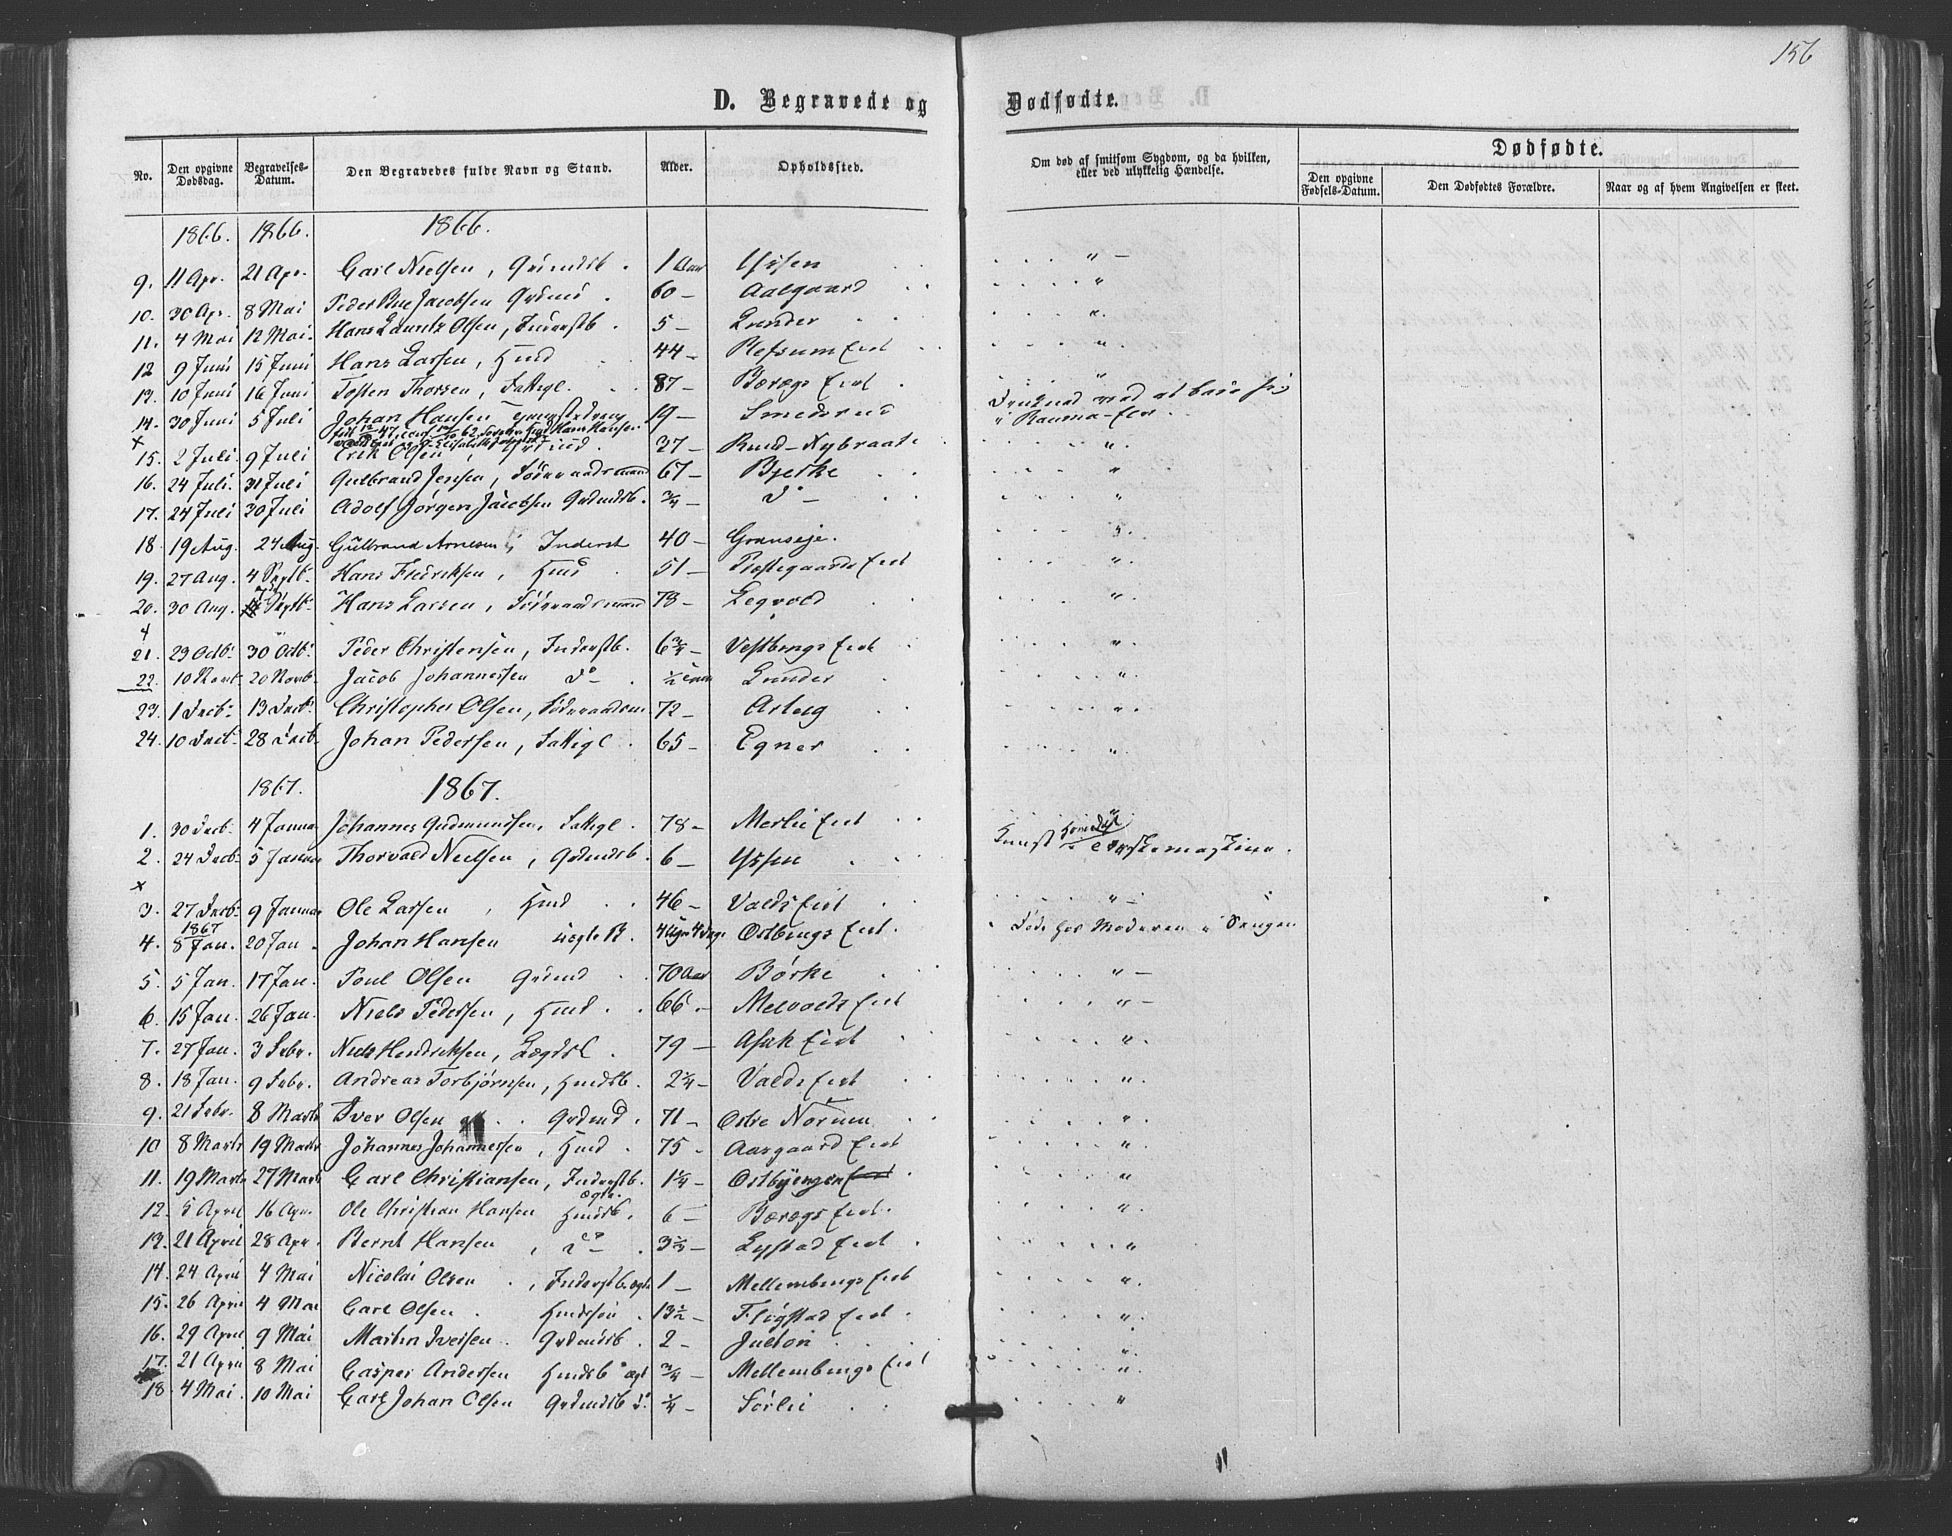 156
D. Begravede og Dødfødte.
No. Den opgivne Dødsdag. Begravelses-Datum. Den Begravedes fulde Navn og Stand. Alder. Opholdssted. Om død af smitsom Sygdom, og da hvilken, eller ved ulykkelig Hændelse. Dødfødte.
Den opgivne Fødsels-Datum. Den Dødfødtes Forældre. Naar og af hvem Angivelsen er skeet.
1866. 1866. 1866.
9. 11 Apr. 21 Apr. Carl Nielsen, Grdmdsb. 1 Aar Ussen " —
10. 30 Apr. 8 Mai Peder Jacobsen Grdmd. 60 — Aalgaard "
11. 4 Mai 12 Mai. Hans Lauritz Olsen, Inderstb. 5 — Lunder "
12 9 Juni 15 Juni Hans Larsen, Husmd 44 — Refsum Eiet "
13. 10 Juni 16 Juni Tosten Thorsen, Fattigl. 87 — Beregs Eiet "
14. 30 Juni 5 Juli Johan Hansen 19 — Smedsrud Druknet ved at bade sig
i Rauma-Elv.
×
15. 2 Juli. 9 Juli Erik Olsen, Grdmd. 37 — Ruud-Nybraate "
16. 24 Juli. 31 Juli Gulbrand Jensen, Føderaadsmand 67 — Bjerke "
17. 24 Juli 30 Juli Adolf Jørgen Jacobsen Grdmdsb. 3/4 — do — "
18 19 Aug. 24 Aug. Gulbrand Arnesen, Inderst 40 — Granseje. "
19. 27 Aug. 4 Septb. Hans Fredriksen, Husmd 51 — Prestegaards Eiet "
20. 30 Aug. Septb. Hans Larsen, Føderaadsmand 78 — Legvold "
21. 23 Octb. 30 Octb. Peder Christensen, Inderstb. 6 3/4 — Vestbyengs Eiet "
22. 10 Novb. 20 Novb. Jacob Johannessen do — 1/2 Lunder "
23. 1 Decb. 13 Decb. Christopher Olsen, Føderaadsm. 72 — Asteg "
24. 10 Decb. 28 Decb. Johan Pedersen, Fattigl. 65 — Egner "
1867. 1867.
1. 30 Decb. 4 Januar Johannes Gudmundsen, Fattigl. 78 — Merlie Eiet "
2. 24 Decb. 5 Januar Thorvald Nielsen, Grdmdsb. 6 — Ussen Knust i Tærskemaskine.
×
3. 27 Decb. 9 Januar Ole Larsen, Husmd 46 — Valds Eiet "
1867
4. 8 Jan. 20 Jan. Johan Hansen uegte B. 4 Uger 4 Dage Ostbyengs Eiet. Døde hos Moderen i Sengen
5. 5 Jan. 17 Jan. Poul Olsen Grdmd 70 Aar Børke " —
6. 15 Jan. 26 Jan. Niels Pedersen, Husmd. 66 — Melvolds Eiet " —
7. 27 Jan. 3 Febr. Niels Hendriksen, Lægdsl. 79 — Asak Eiet "
8. 18 Jan. 9 Febr. Andreas Torbjørnsen, Husmdsb. 2 1/4 — Valds Eiet "
9. 21 Febr. 8 Marts Iver Olsen Grdmd. 71 — Ostre Norum "
10 8 Marts 19 Marts Johannes Johannessen, Husmd. 75 — Aasgaard Eiet "
11. 19 Marts 27 Marts Carl Christiansen, Inderstb. 1 1/4 — Ostbyengen "
ægte.
12. 5 April 16 Apr. Ole Christian Hansen Husmdsb. 6 — Beregs Eiet. "
13. 21 April 28 Apr. Bernt Hansen, do — 3 1/2 — Lystad Eiet. "
14. 24 April 4 Mai Nicolai Olsen, Inderstb. ægte 1 — Mellembyengs Eiet "
15. 26 April 4 Mai Carl Olsen. Husmdssøn. 13 1/2 — Flogstad Eiet. "
16. 29 April 9 Mai Martin Iversen. Grdmdsb. 2 — Julton "
17. 21 April 8 Mai Casper Andersen Husmdsb ægt 3/4 — Mellembyengs Eiet "
18. 4 Mai. 10 Mai Carl Johan Olsen Grdmdsb 1/4 — Sørlie "